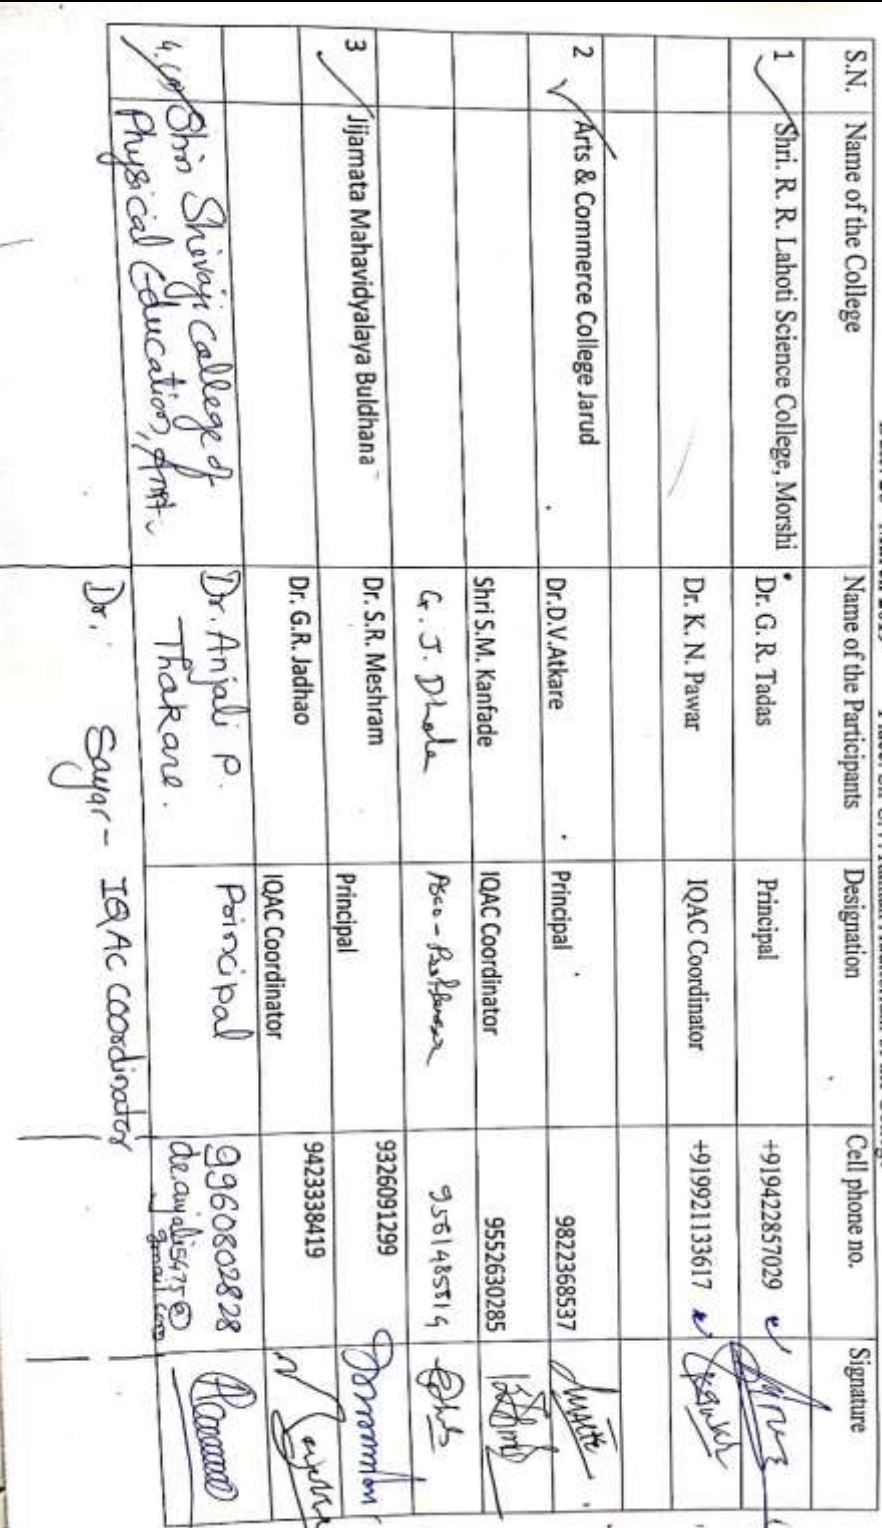 S.N. Name of the College Name of the Participants Designation Cell phone no. Signature
1 Shri. R. R. Lahoti Science College, Morshi Dr. G. R. Tadas Principal +919422857029
Dr. K. N. Pawar IQAC Coordinator +919921133617
2 Arts & Commerce College Jarud Dr.D.V.Atkare Principal 9822368537
Shri S.M. Kanfade IQAC Coordinator 9552630285
G. J. Dhole
3 Jijamata Mahavidyalaya Buldhana Dr. S.R. Meshram Principal 9326091299
Dr. G.R. Jadhao IQAC Coordinator 9423338419
4. Shri Shivaji College of Dr. Anjali P. Principal 9960802828
Physical Education, Thakare.
Dr. Sayar - IQAC Coordinator